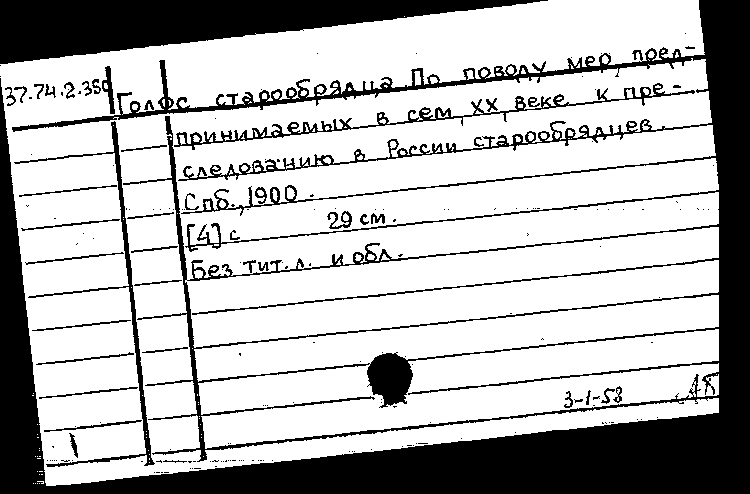 37.74.2.350 Голос старообрядца По поводу мер, пред-
принимаемых в сем, XX, веке к пре-
следованию в России старообрядцев.
Спб., 1900.
[4] с 29 см.
Без тит. л. и обл.
3-1-53